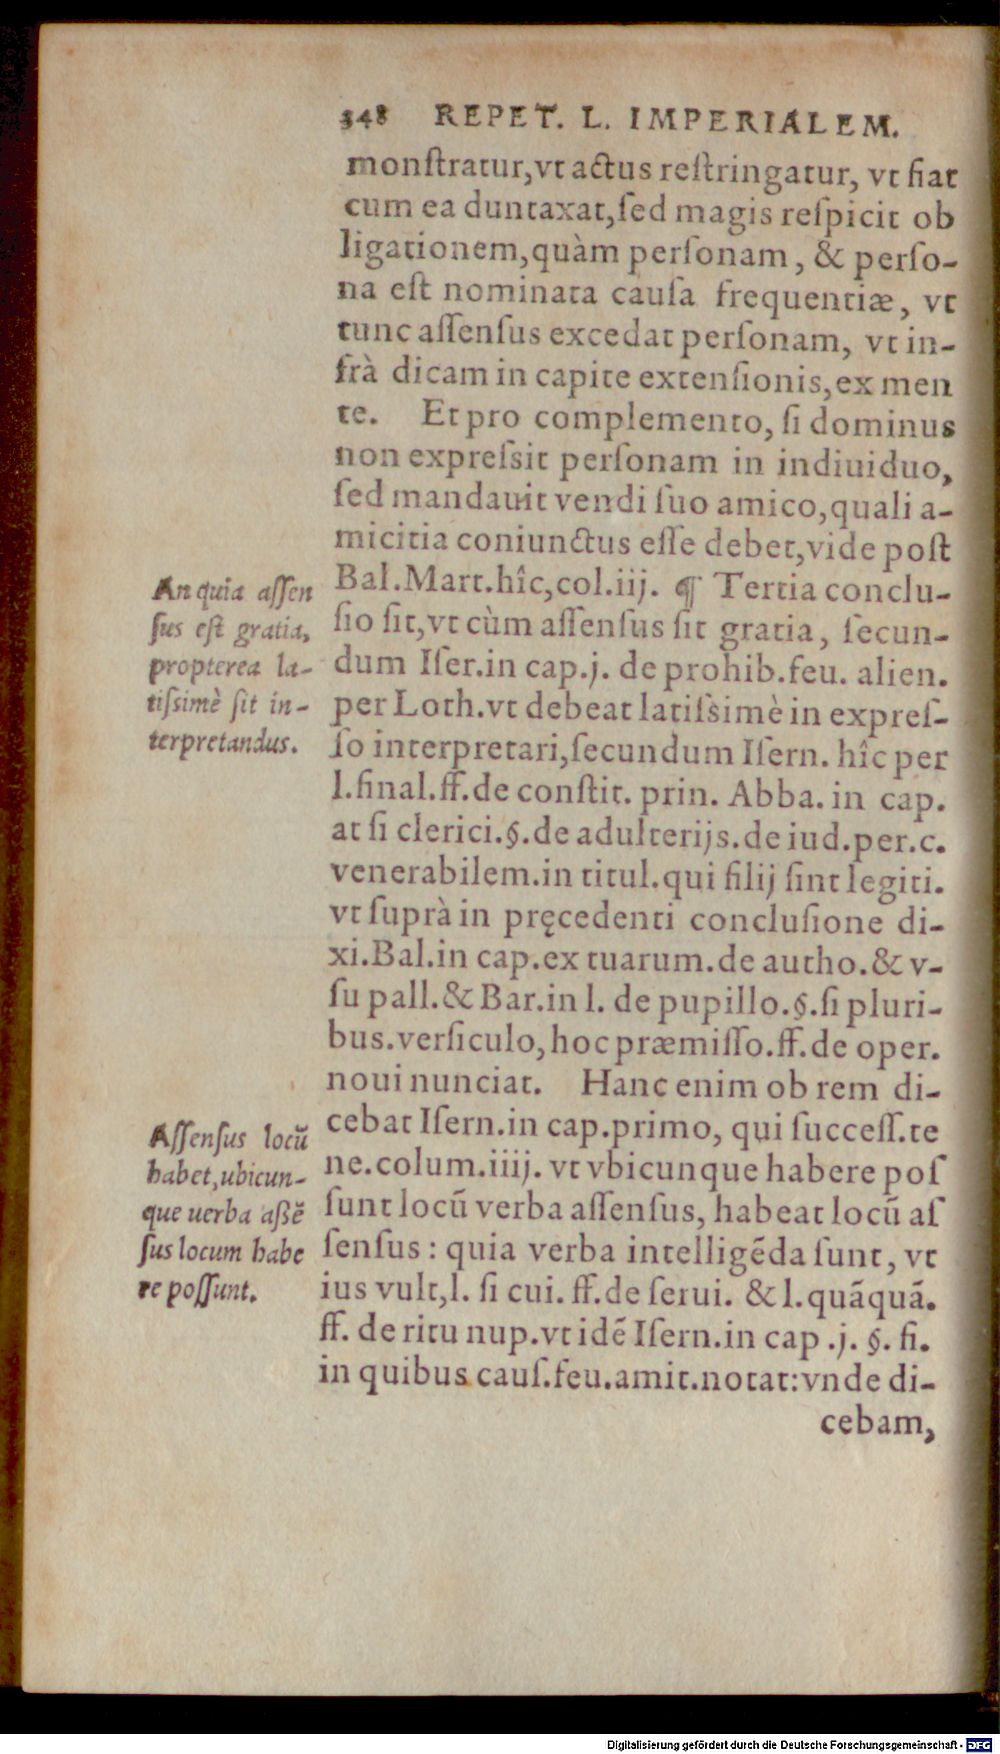 348 REPET. L. IMPERIALEM.
monſtratur,vt actus reſtringatur, vt fiat
cum ea duntaxat,ſed magis reſpicit ob
ligationem,quàm perſonam, & perſo-
na eſt nominata cauſa frequentiæ, vt
tunc aſſenſus excedat perſonam, vt in-
frà dicam in capite extenſionis,ex men
te. Et pro complemento, ſi dominus
non expreſsit perſonam in indiuiduo,
ſed mandauit vendi ſuo amico,quali a-
micitia coniunctus eſſe debet,vide poſt
Bal.Mart.hîc,col.iij. ¶ Tertia conclu-
ſio ſit,vt cùm aſſenſus ſit gratia, ſecun-
dum Iſer.in cap.j. de prohib.feu. alien.
per Loth.vt debeat latiſsimè in expreſ-
ſo interpretari,ſecundum Iſern. hîc per
l.final.ff.de conſtit. prin. Abba. in cap.
at ſi clerici.§.de adulterijs.de iud.per.c.
venerabilem.in titul.qui filij ſint legiti.
vt ſuprà in pręcedenti concluſione di-
xi.Bal.in cap.ex tuarum.de autho.& v-
ſu pall.& Bar.in l. de pupillo.§.ſi pluri-
bus.verſiculo,hoc præmiſſo.ff.de oper.
noui nunciat. Hanc enim ob rem di-
cebat Iſern.in cap.primo, qui ſucceſſ.te
ne.colum.iiij. vt vbicunque habere poſ
ſunt locū verba aſſenſus, habeat locū aſ
ſenſus : quia verba intelligēda ſunt, vt
ius vult,l. ſi cui. ff.de ſerui. & l.quāquā.
ff. de ritu nup.vt idē Iſern.in cap .j. §. fi.
in quibus cauſ.feu.amit.notat:vnde di-
cebam,
An quia aſſen
ſus eſt gratia,
propterea la-
tiſsimè ſit in-
terpretandus.
Aſſenſus locū
habet,ubicun-
que uerba aßē
ſus locum habe
re poſſunt.
Digitalisierung gefördert durch die Deutsche Forschungsgemeinschaft - DFG